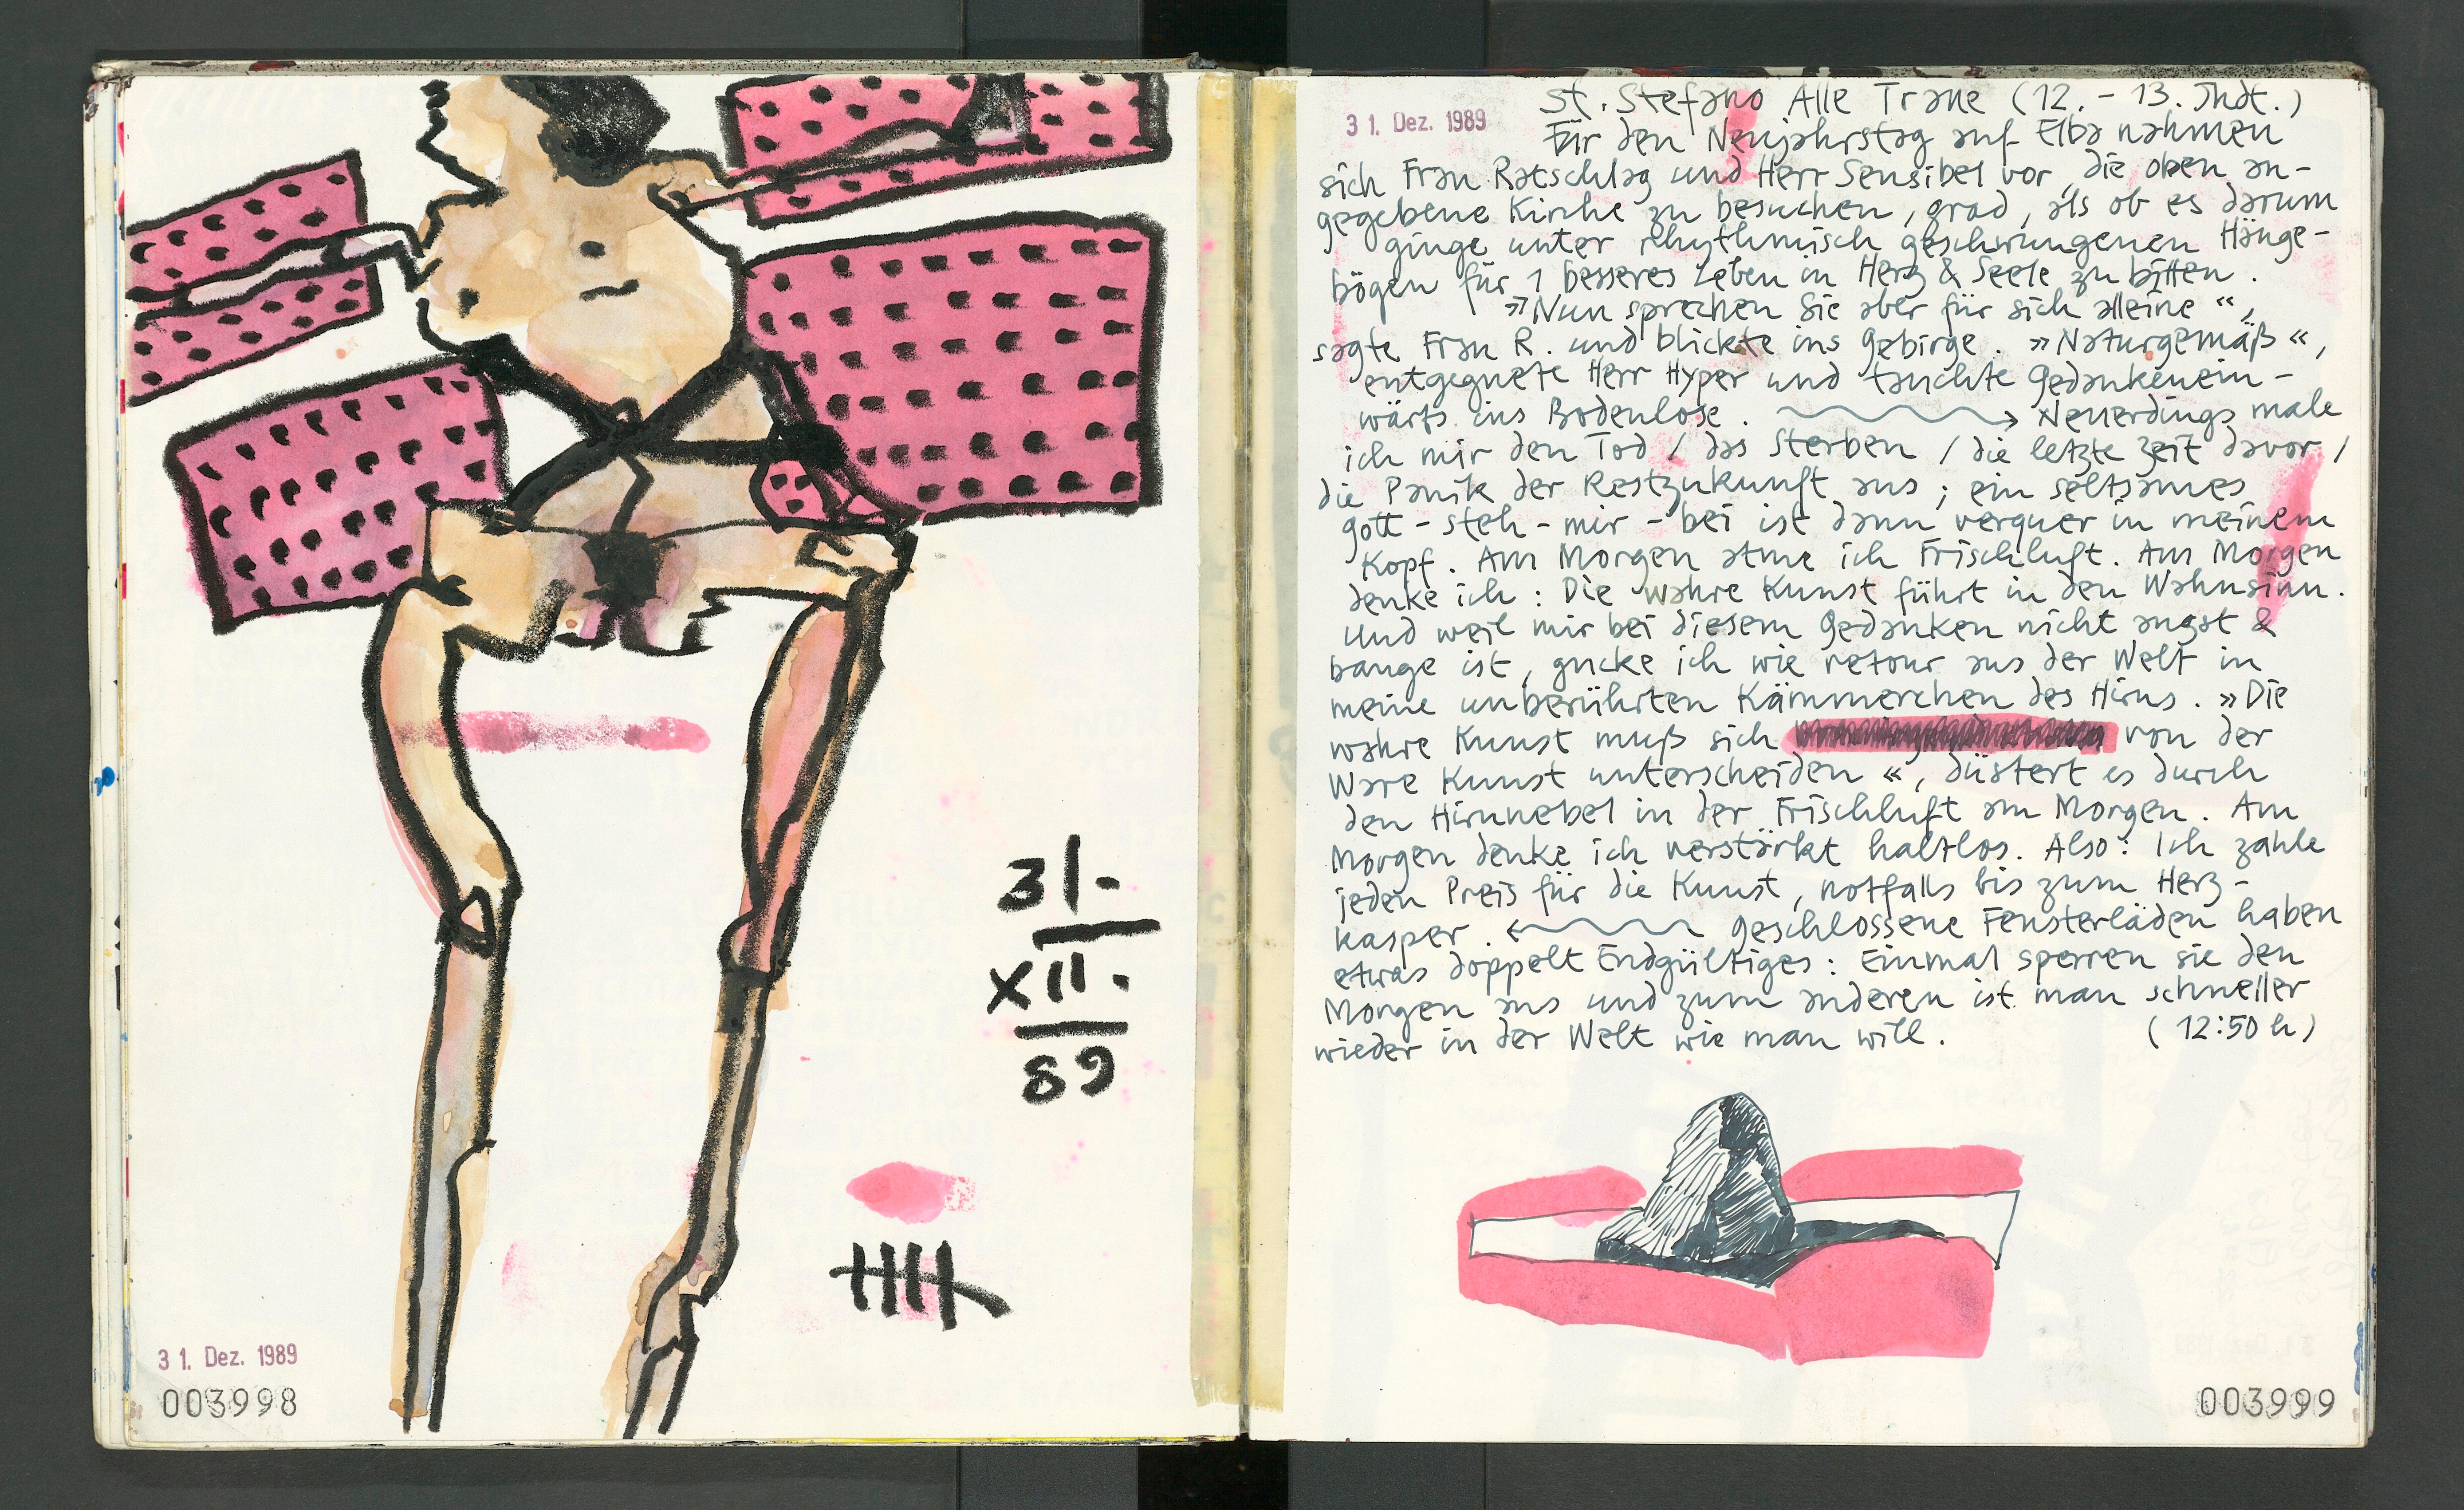 31.
XII.
89
31. Dez. 1989
003998
31. Dez. 1989
St. Stefano Alle Trane (12. - 13. Jhdt.)
Für den Neujahrstag auf Elba nahmen
sich Frau Ratschlag und Herr Sensibel vor, die oben an-
gegebene Kirche zu besuchen, grad, als ob es darum
ginge unter rhythmisch geschwungenen Hänge-
bögen für 1 besseres Leben in Herz & Seele zu bitten.
»Nun sprechen Sie aber für sich alleine«,
sagte Frau R. und blickte ins Gebirge. »Naturgemäß«,
entgegnete Herr Hyper und tauchte gedankenein-
wärts ins Bodenlose. Neuerdings male
ich mir den Tod / das Sterben / die letzte Zeit davor /
die Panik der Restzukunft aus; ein seltsames
Gott-steh-mir-bei ist dann verquer in meinem
Kopf. Am Morgen atme ich Frischluft. Am Morgen
denke ich: Die wahre Kunst führt in den Wahnsinn.
Und weil mir bei diesem Gedanken nicht angst &
bange ist, gucke ich wie retour aus der Welt in
meine unberührten Kämmerchen des Hirns. »Die
wahre Kunst muß sich von der
Ware Kunst unterscheiden«, düstert es durch
den Hirnnebel in der Frischluft am Morgen. Am
Morgen denke ich verstärkt haltlos. Also: Ich zahle
jeden Preis für die Kunst, notfalls bis zum Herz-
kasper. Geschlossene Fensterläden haben
etwas doppelt Endgültiges: Einmal sperren sie den
Morgen aus und zum anderen ist man schneller
wieder in der Welt wie man will. (12:50 h)
003999